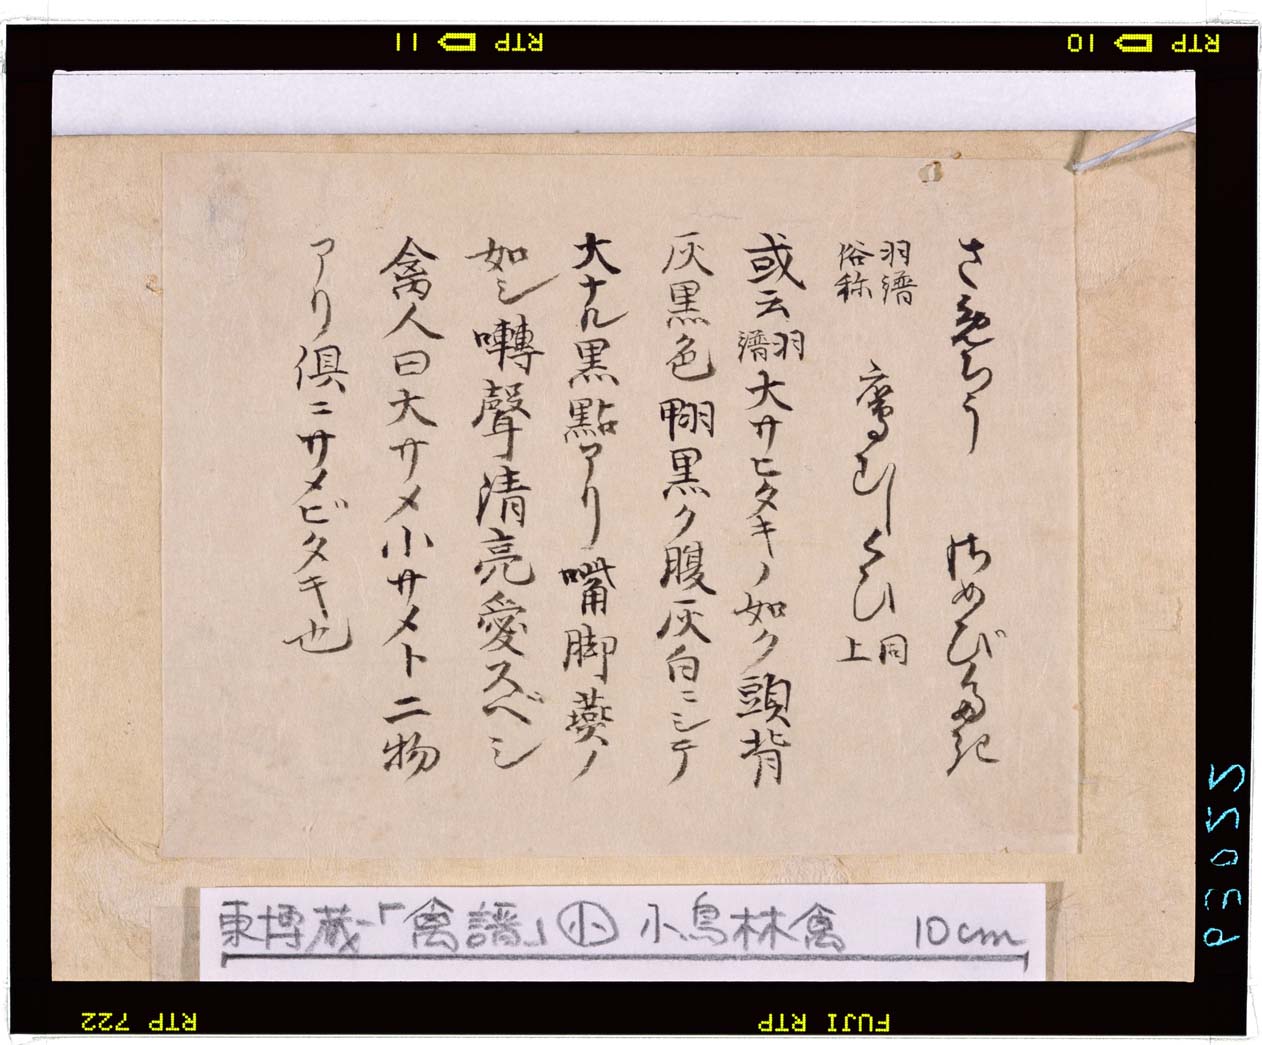 RTP 11
RTP 10
さめびたき
羽譜
俗称
むしくひ
同上
或云羽譜大サヒタキノ如ク頭背
灰黒色翈黒ク腹灰白ニシテ
大ナル黒點アリ嘴脚燕ノ
如シ囀聲清亮愛スベシ
禽人曰大サメ小サメト二物
アリ倶ニサメビタキ也
東博蔵「禽譜」小 小鳥林禽 10cm
RTP 722
FUJI RTP